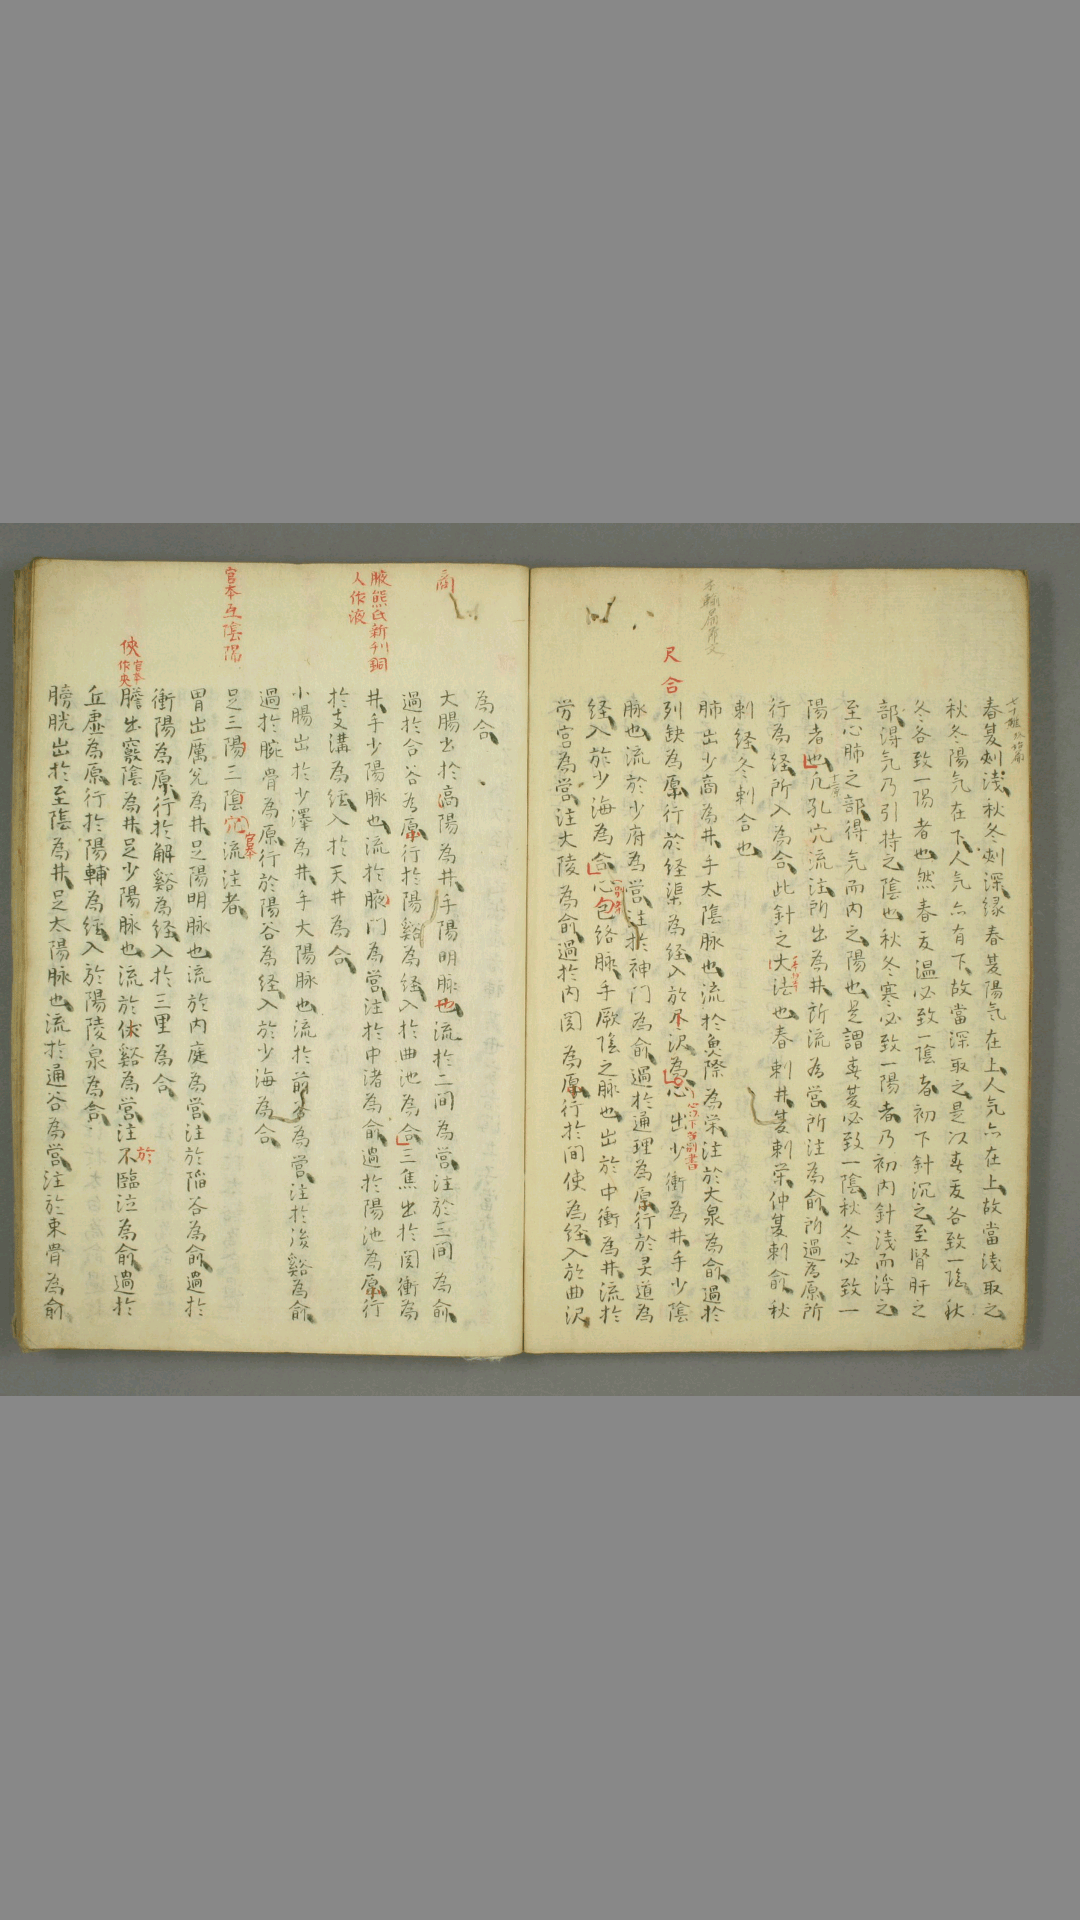 春夏刺淺秋冬刺深縁春夏陽気在上人気亦在上故當淺取之
秋冬陽気在下人気亦有下故當深取之是以春夏各致一陰秋
冬各致一陽者也然春夏温必致一陰者初下針沉之至腎肝之
部得気乃引持之陰也秋冬寒必致一陽者乃初内針淺而浮之
至心肺之部得気而内之陽也是謂春夏必致一陰秋冬必致一
陽者也凡孔穴流注所出為井所流為営所注為俞所過為原所
行為経所入為合此針之大法也春刺井夏刺栄仲夏刺俞秋
刺経冬刺合也
肺出少商為井手太陰脉也流於魚際為栄注於大泉為俞過於
尺
合
列缺為原行於経渠為経入於尺沢為心出少衝為井手少陰
脉也流於少府為営注於神门為俞過於通理為原行於灵道為
経入於少海為合心包絡脉手厥陰之脉也出於中衝為井流於
労宮為営注大陵為俞過於内関為原行於间使為経入於曲沢
為合
商
大腸出於高陽為井手陽明脉也流於二间為営注於三间為俞
過於合谷為原行於陽谿為経入於曲池為合三焦出於関衝為
腋熊氏新刊銅
人作液
井手少陽脉也流於腋门為営注於中渚為俞過於陽池為原行
於支溝為経入於天井為合
小腸出於少澤為井手大陽脉也流於前谷為営注於後谿為俞
過於腕骨為原行於陽谷為経入於少海為合
官本互陰陽
足三陽三陰穴流注者
官本
胃出厲兌為井足陽明脉也流於内庭為営注於陷谷為俞過於
衝陽為原行於解谿為経入於三里為合
俠官本作夾
膽出竅陰為井足少陽脉也流於侠谿為営注不臨泣為俞過於
於
丘虚為原行於陽輔為経入於陽陵泉為合
膀胱出於至陰為井足太陽脉也流於通谷為営注於束骨為俞